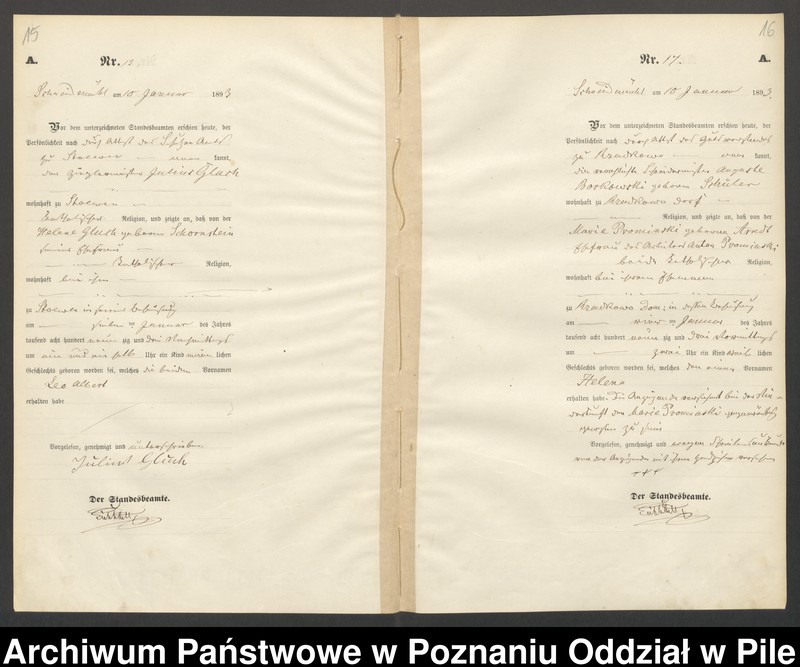 15
A.
Nr.
Schneidemühl am 10 Januar 1893
Vor dem unterzeichneten Standesbeamten erschien heute, der
Persönlichkeit nach durch Attest des
zu Stoewen kannt,
der Ziegelmeister Julius Gluch
wohnhaft zu Stoewen
katholischer Religion, und zeigte an, daß von der
Helene Gluch geborenen Schornstein
seiner Ehefrau
katholischer Religion,
wohnhaft bei ihm
zu Stoewen in seiner Behausung
am sieben ten Januar des Jahres
tausend acht hundert neun zig und drei Nachmittags
um ein und ein halb Uhr ein Kind männ lichen
Geschlechts geboren worden sei, welches die beiden Vornamen
Leo Albert
erhalten habe
Vorgelesen, genehmigt und unterschrieben
Julius Gluch
Der Standesbeamte.
16
Nr. 17. A.
Schneidemühl am 10 Januar 1893.
Vor dem unterzeichneten Standesbeamten erschien heute, der
Persönlichkeit nach durch Attest des Gutsvorstandes
zu Krudkowo kannt,
die verehelichte Auguste
Borkowski geborene Schüler
wohnhaft zu dorf
Religion, und zeigte an, daß von der
Marie Prominski geborenen Arndt
Ehefrau des Arbeiters Anton Prominski
beide katholischer Religion,
wohnhaft bei ihrem Ehemann
zu Dom: in dessen Behausung
am vier ten Januar des Jahres
tausend acht hundert neun zig und drei Vormittags
um zwei Uhr ein Kind weib lichen
Geschlechts geboren worden sei, welches den einen Vornamen
Helena
erhalten habe. Die Anzeigende versichert bei der Nie
derkunft der Marie Prominski gegenwärtig
gewesen zu sein
Vorgelesen, genehmigt und wegen Schreibensunkunde
von der Anzeigenden mit ihrem Handzeichen versehen
+++
Der Standesbeamte.
Archiwum Państwowe w Poznaniu Oddział w Pile